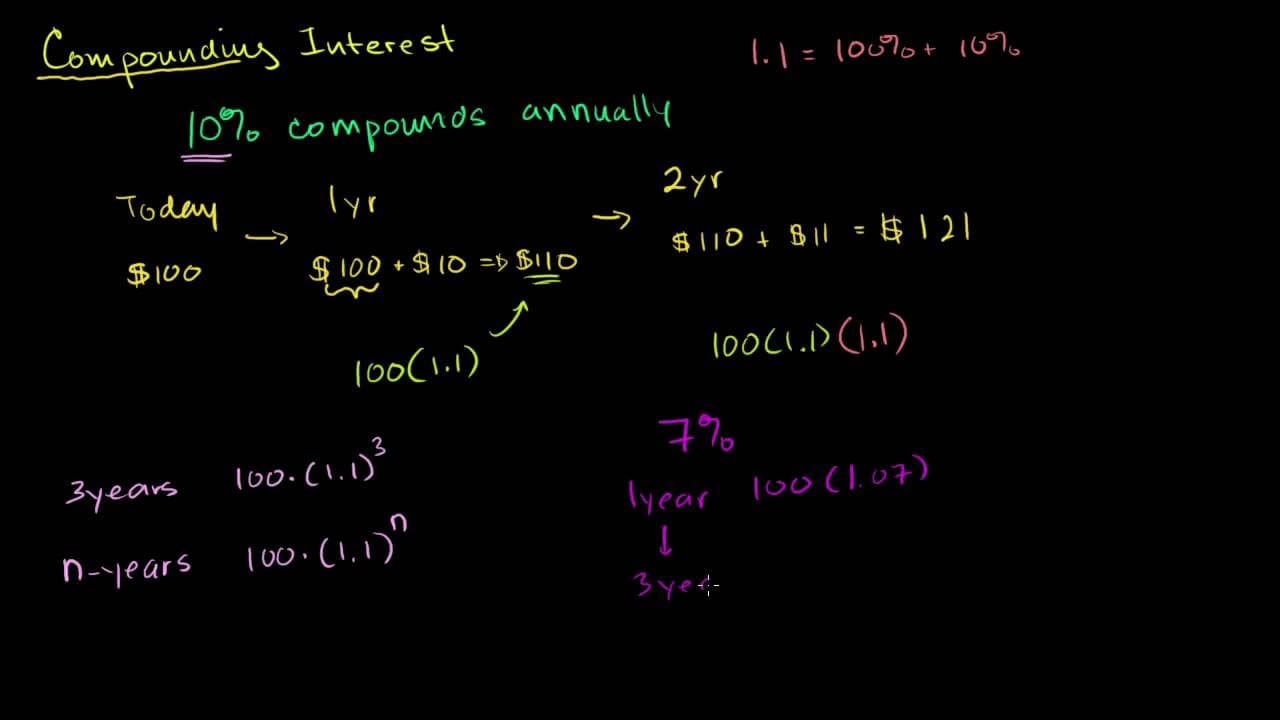 Compounding Interest
1.1 = 100% + 10%
10% compounds annually
Today → 1yr → 2yr
$100 $100 + $10 => $110 $110 + $11 = $121
100(1.1) 100(1.1)(1.1)
7%
3years 100·(1.1)^3
1year 100(1.07)
n-years 100·(1.1)^n
↓
3yea